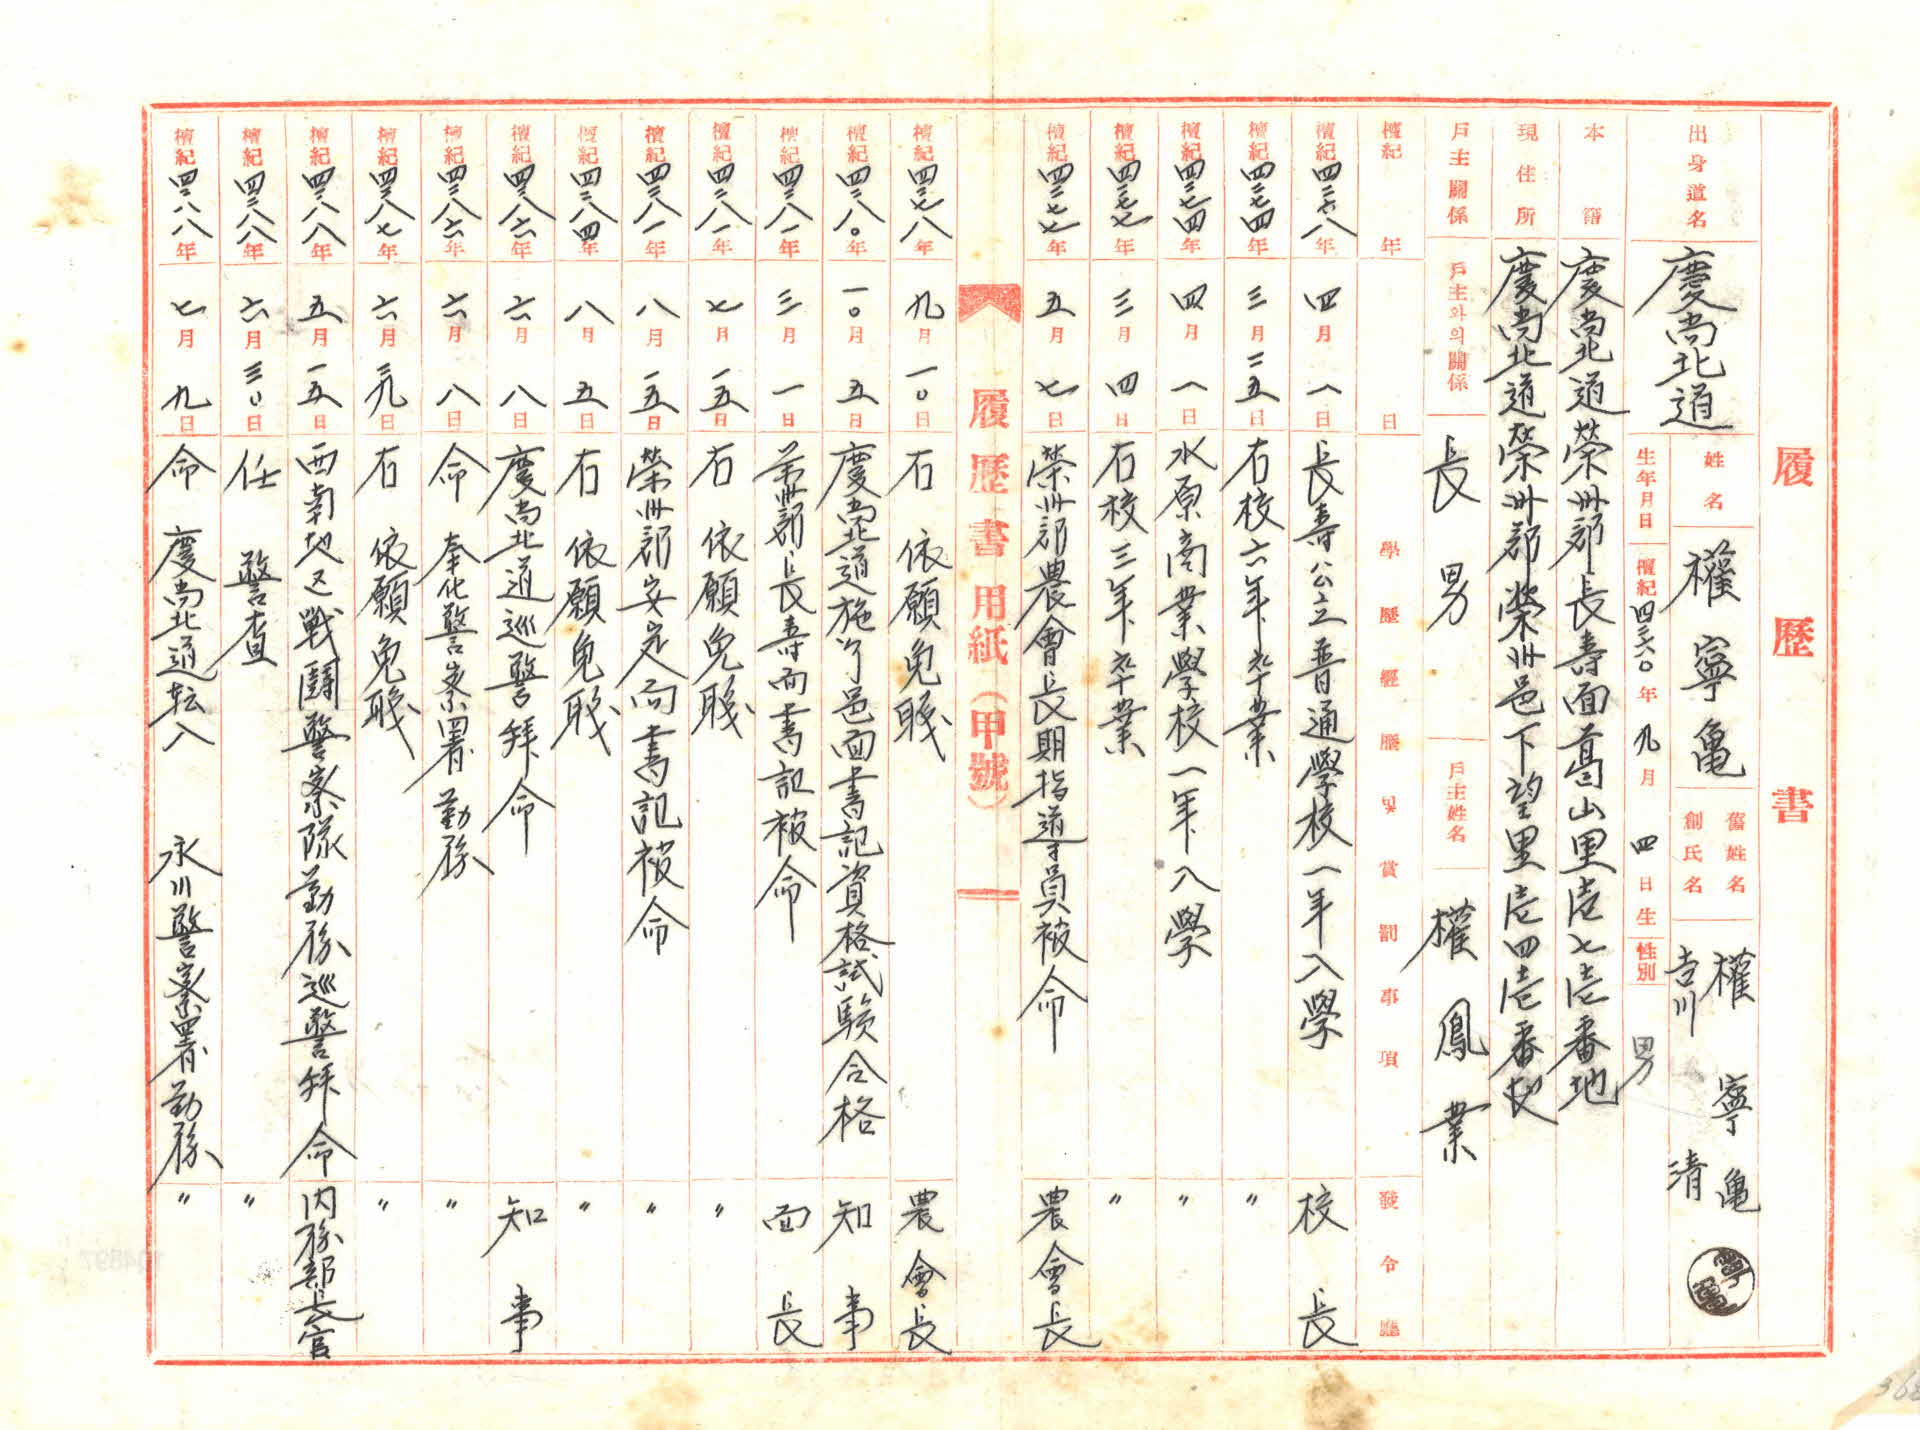 履歷書
出身道名 慶尚北道 姓名 權寧龜 舊姓名 權寧龜
創氏名 吉川清
生年月日 檀紀四二六〇年九月四日生 性別 男
本籍 慶尚北道榮州郡長壽面葛山里壱七壱番地
現住所 慶尚北道榮州郡榮州邑下望里壱四壱番地
戶主關係 戶主와의關係 長男 戶主姓名 權鳳業
檀紀 年 月 日 學歷經歷및賞罰事項 發令廳
檀紀四二六八年 四月一日 長壽公立普通學校一年入學 校長
檀紀四二七四年 三月二五日 右校六年卒業 〃
檀紀四二七四年 四月一日 水原商業學校一年入學 〃
檀紀四二七七年 三月四日 右校三年卒業 〃
檀紀四二七七年 五月七日 榮州郡農會長期指導員被命 農會長
履歷書用紙(甲號)
檀紀四二七八年 九月一〇日 右依願免職 農會長
檀紀四二八〇年 一〇月五日 慶尚北道施行邑面書記資格試驗合格 知事
檀紀四二八一年 三月一日 榮州郡長壽面書記被命 面長
檀紀四二八一年 七月一五日 右依願免職 〃
檀紀四二八一年 八月一五日 榮州郡安定面書記被命 〃
檀紀四二八四年 八月五日 右依願免職 〃
檀紀四二八六年 六月八日 慶尚北道巡警拜命 知事
檀紀四二八六年 六月八日 命 奉化警察署勤務 〃
檀紀四二八七年 六月二九日 右依願免職 〃
檀紀四二八八年 五月一五日 西南地区戰鬪警察隊勤務巡警拜命 內務部長官
檀紀四二八八年 六月三〇日 任 警査 〃
檀紀四二八八年 七月九日 命 慶尚北道転入 永川警察署勤務 〃